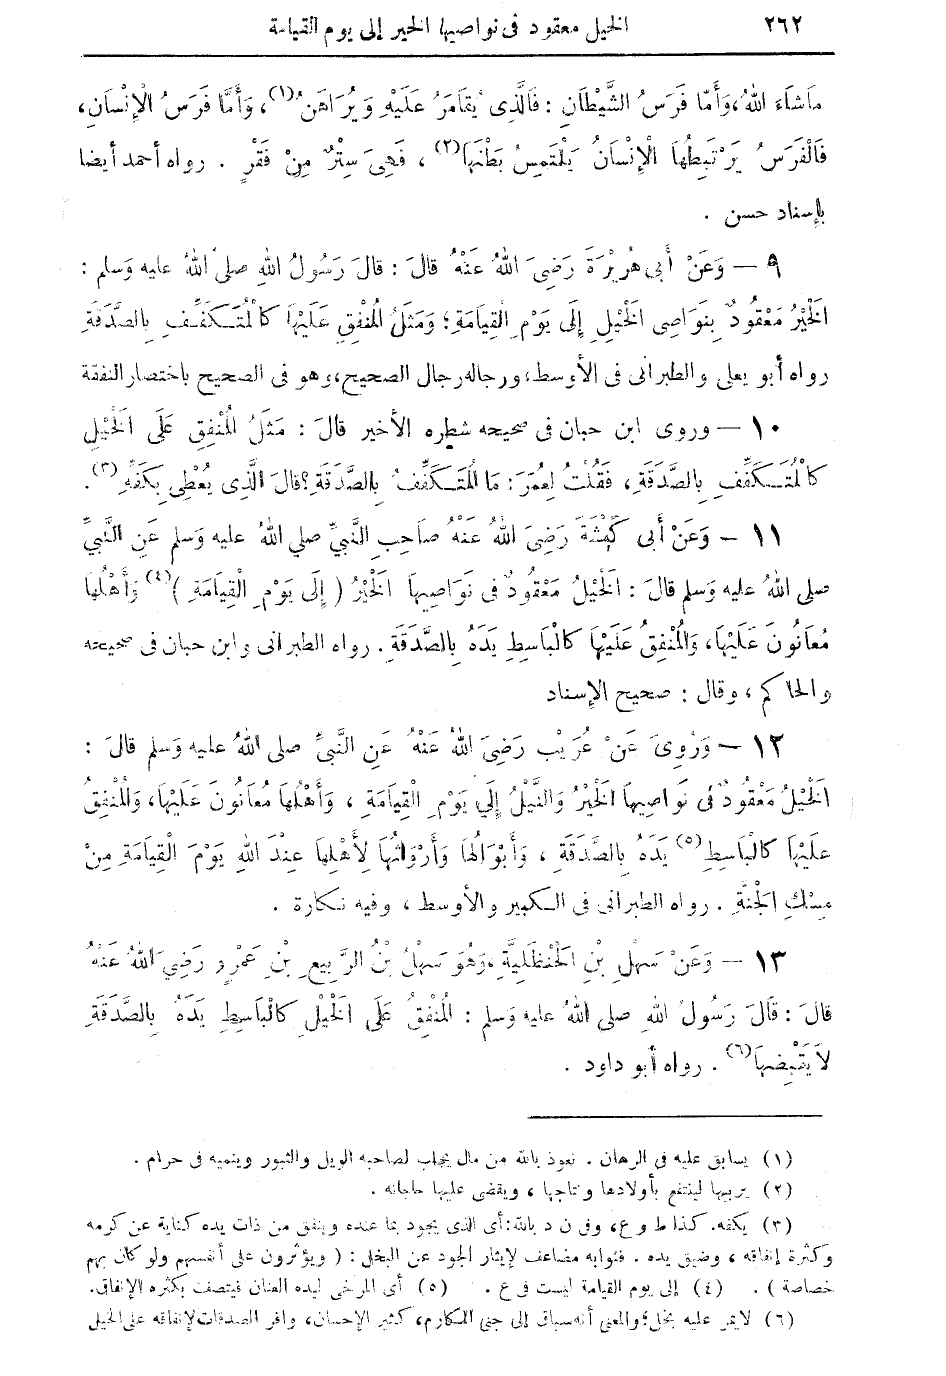 ٢٦٢ الخيل معقود فى نواصيها الخير إلى يوم القيامة
مَاشَاءَ اللهُ، وَأَمّا فَرَسُ الشَّيْطَانِ : فَالَّذِى يُقَامَرُ عَلَيْهِ وَيُرَاهَنُ(١)، وَأَمَّا فَرَسُ الْإِنْسَانِ،
فَالْفَرَسُ يَرْتَبِطُهَا الْإِنْسَانُ يَلْتَمِسُ بَطْنَهَا(٢) ، فَهِىَ سِتْرٌ مِنْ فَقْرٍ . رواه أحمد أيضا
بإسناد حسن .
٩ – وَعَنْ أَبى هُرَيْرَةَ رَضِىَ اللهُ عَنْهُ قالَ : قالَ رَسُولُ اللهِ صلى اللهُ عليه وَسلم :
الْخَيْرُ مَعْقُودٌ بِنَوَاصِى الْخَيْلِ إِلَى يَوْمِ الْقِيَامَةِ؛ وَمَثَلُ الْمُنْفِقِ عَلَيْهَا كَالْمُتَكَفِّفِ بِالصَّدَقَةِ
رواه أبو يعلى والطبرانى فى الأوسط، ورجاله رجال الصحيح، وهو فى الصحيح باختصار النفقة
١٠ – وروى ابن حبان فى صحيحه شطره الأخير قالَ : مَثَلُ الْمُنْفِقِ عَلَى الْخَيْلِ
كَالْمُتَكَفِّفِ بِالصَّدَقَةِ، فَقُلْتُ لِمَعْمَرَ: مَا الْمُتَكَفِّفُ بِالصَّدَقَةِ؟ قالَ الَّذِى يُعْطِى بِكَفِّهِ(٣).
١١ – وَعَنْ أَبى كَبْشَةَ رَضِىَ اللهُ عَنْهُ صَاحِبِ النَّبِيِّ صلي اللهُ عليه وَسلم عَنِ النَّبِيِّ
صلى اللهُ عليه وَسلم قالَ : الْخَيْلُ مَعْقُودٌ فى نَوَاصِيهَا الْخَيْرُ ( إِلَى يَوْمِ الْقِيَامَةِ )(٤) وَأَهْلُهَا
مُعَانُونَ عَلَيْهَا، وَالْمُنْفِقُ عَلَيْهَا كَالْبَاسِطِ يَدَهُ بِالصَّدَقَةِ. رواه الطبرانى وابن حبان فى صحيحه
والحاكم ، وقال : صحيح الإسناد
١٢ – وَرُوِىَ عَنْ عُرَيْبٍ رَضِىَ اللهُ عَنْهُ عَنِ النَّبِيِّ صلى اللهُ عليه وَسلم قالَ :
الْخَيْلُ مَعْقُودٌ فى نَوَاصِيهَا الْخَيْرُ وَالنَّيْلُ إِلَي يَوْمِ الْقِيَامَةِ ، وَأَهْلُهَا مُعَانُونَ عَلَيْهَا، وَالْمُنْفِقُ
عَلَيْهَا كَالْبَاسِطِ(٥) يَدَهُ بِالصَّدَقَةِ ، وَأَبْوَالُهَا وَأَرْوَاثُهَا لِأَهْلِهَا عِنْدَ اللهِ يَوْمَ الْقِيَامَةِ مِنْ
مِسْكِ الْجَنَّةِ . رواه الطبرانى فى الكبير والأوسط ، وفيه نكارة .
١٣ – وَعَنْ سَهْلِ بْنِ الْحَنْظَلِيَّةِ، وَهُوَ سَهْلُ بْنُ الرَّبِيعِ بْنِ عَمْرٍو رَضِيَ اللهُ عَنْهُ
قالَ : قَالَ رَسُولُ اللهِ صلى اللهُ عليه وَسلم : الْمُنْفِقُ عَلَى الْخَيْلِ كَالْبَاسِطِ يَدَهُ بِالصَّدَقَةِ
لاَ يَقْبِضُهَا(٦) . رواه أبو داود .
(١) يسابق عليه فى الرهان . نعوذ بالله من مال يجلب لصاحبه الويل والثبور وينميه فى حرام .
(٢) يربيها لينتفع بأولادها ونتاجها ، ويقضى عليها حاجاته .
(٣) بكفه. كذا ط و ع، وفى ن د بالله: أى الذى يجود بما عنده وينفق من ذات يده كناية عن كرمه
وكثرة إنفاقه ، وضيق يده . فثوابه مضاعف لإيثار الجود عن البخل : ( ويؤثرون على أنفسهم ولو كان بهم
خصاصة ) . (٤) إلى يوم القيامة ليست فى ع . (٥) أى المرخى ليده العنان فيتصف بكثرة الإنفاق.
(٦) لايمر عليه بخل؛ والمعنى أنه سباق إلى جنى المكارم، كثير الإحسان، وافر الصدقات لإنفاقه على الخيل